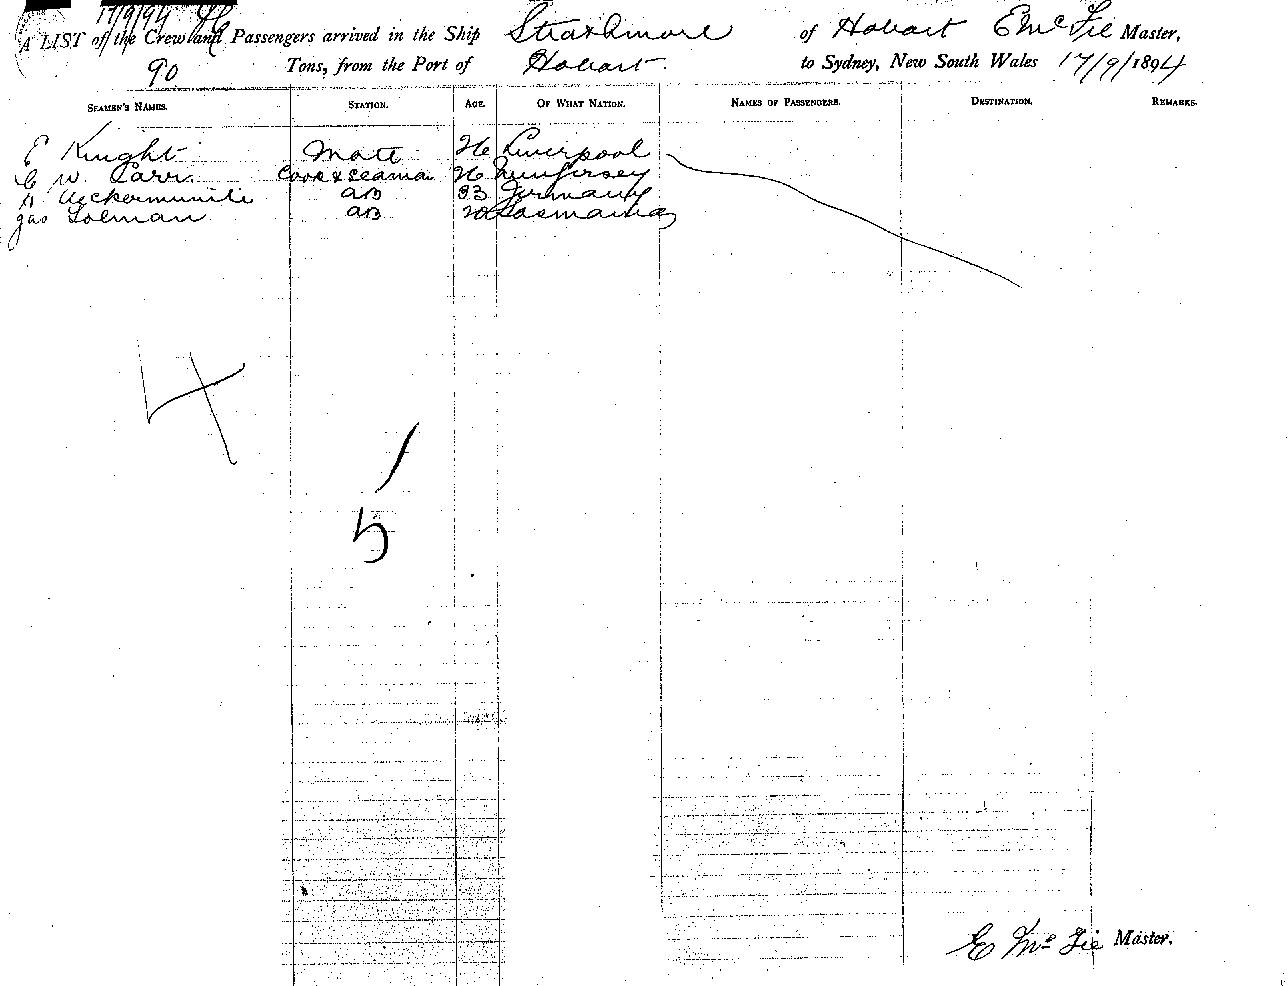 17/9/94
A LIST of the Crew and Passengers arrived in the Ship Strathmore of Hobart E Mc Fie Master,
90 Tons, from the Port of Hobart to Sydney, New South Wales 17/9/1894
SEAMEN'S NAMES. STATION. AGE. OF WHAT NATION. NAMES OF PASSENGERS. DESTINATION. REMARKS.
E Knight Mate 26 Liverpool
C W. Carr Cook & Seaman 26 New Jersey
A AB 33 Germany
Jas Solman AB 20 Tasmania
4
1
5
E Mc Fie Master.